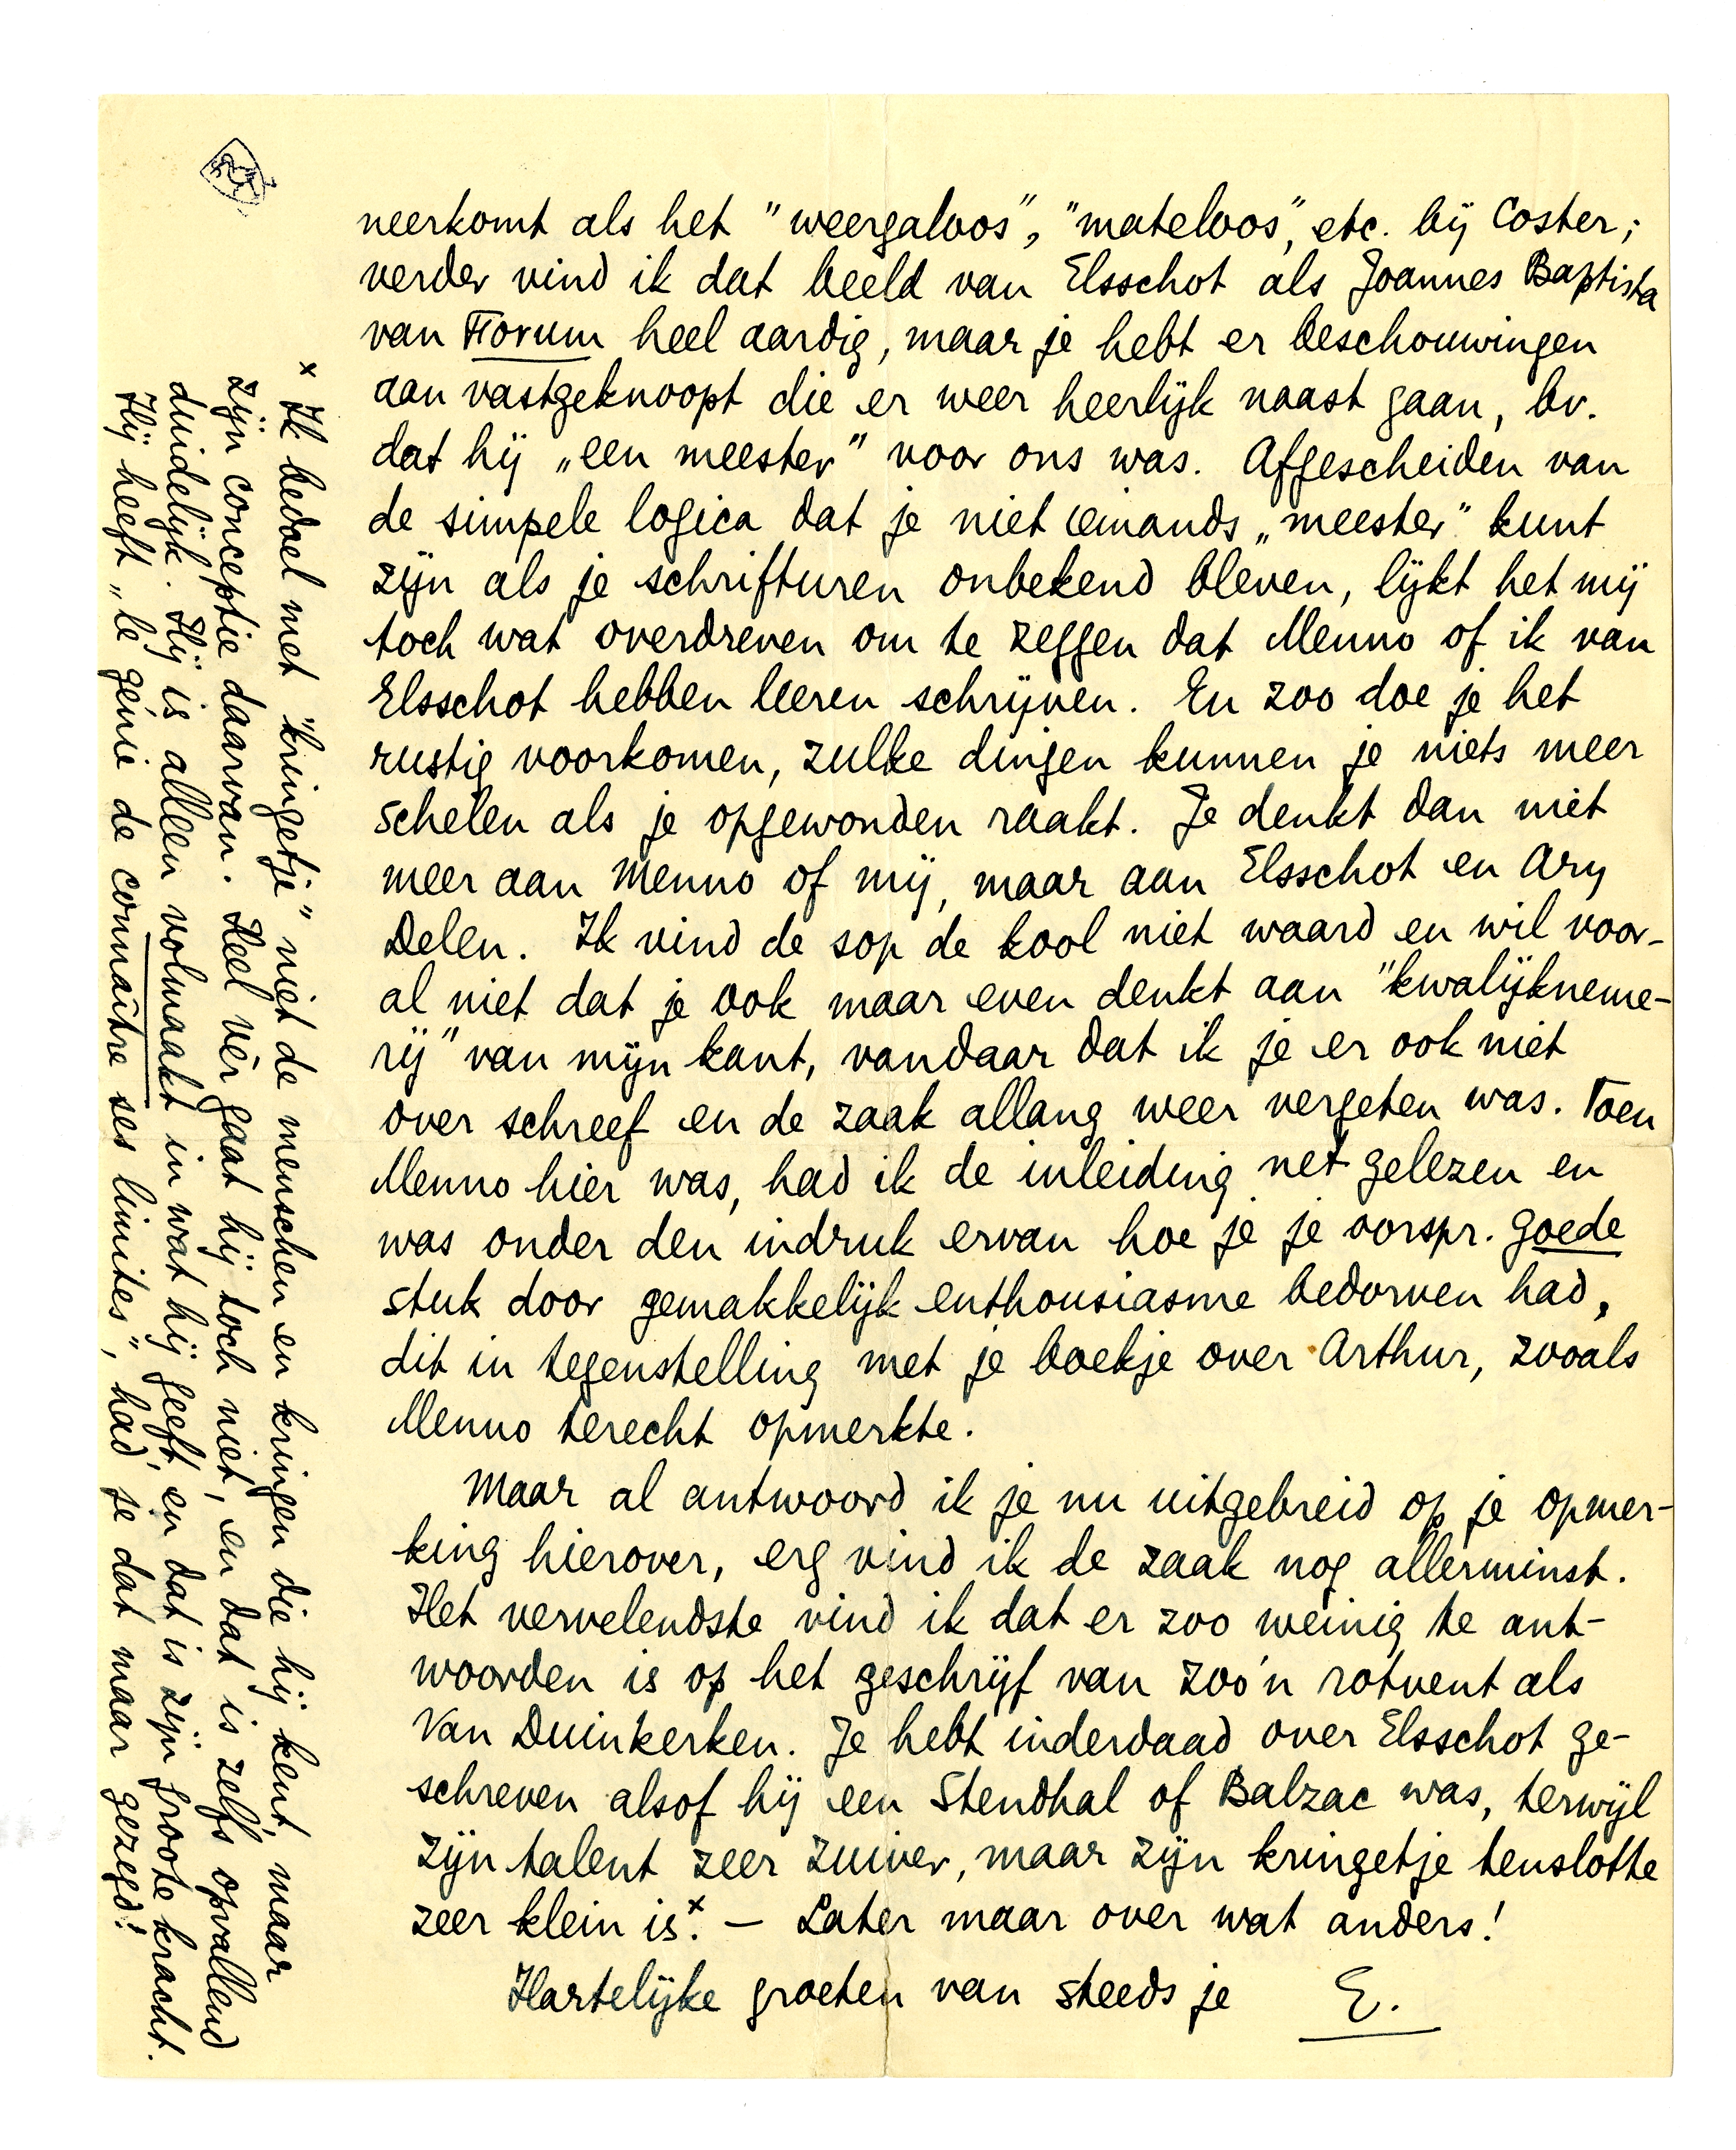 neerkomt als het "weergaloos", "mateloos", etc. bij Coster;
verder vind ik dat beeld van Elsschot als Joannes Baptista
van Forum heel aardig, maar je hebt er beschouwingen
aan vastgeknoopt die er weer heerlijk naast gaan, bv.
dat hij „een meester" voor ons was. Afgescheiden van
de simpele logica dat je niet iemands „meester" kunt
zijn als je schrifturen onbekend bleven, lijkt het mij
toch wat overdreven om te zeggen dat Menno of ik van
Elsschot hebben leeren schrijven. En zoo doe je het
rustig voorkomen, zulke dingen kunnen je niets meer
schelen als je opgewonden raakt. Je denkt dan niet
meer aan Menno of mij, maar aan Elsschot en Ary
Delen. Ik vind de sop de kool niet waard en wil voor-
al niet dat je ook maar even denkt aan "kwalijkneme-
rij" van mijn kant, vandaar dat ik je er ook niet
over schreef en de zaak allang weer vergeten was. Toen
Menno hier was, had ik de inleiding net gelezen en
was onder den indruk ervan hoe je je oorspr. goede
stuk door gemakkelijk enthousiasme bedorven had,
dit in tegenstelling met je boekje over Arthur, zooals
Menno terecht opmerkte.
Maar al antwoord ik je nu uitgebreid op je opmer-
king hierover, erg vind ik de zaak nog allerminst.
Het vervelendste vind ik dat er zoo weinig te ant-
woorden is op het geschrijf van zoo'n rotvent als
Van Duinkerken. Je hebt inderdaad over Elsschot ge-
schreven alsof hij een Stendhal of Balzac was, terwijl
zijn talent zeer zuiver, maar zijn kringetje tenslotte
zeer klein is.x — Later maar over wat anders!
Hartelijke groeten van steeds je E.
x Ik bedoel met "kringetje" niet de menschen en kringen die hij kent, maar
zijn conceptie daarvan. Heel vèr gaat hij toch niet, en dat is zelfs opvallend
duidelijk. Hij is alleen volmaakt in wat hij geeft, en dat is zijn groote kracht.
Hij heeft „le génie de connaître ses limites", had je dat maar gezegd!